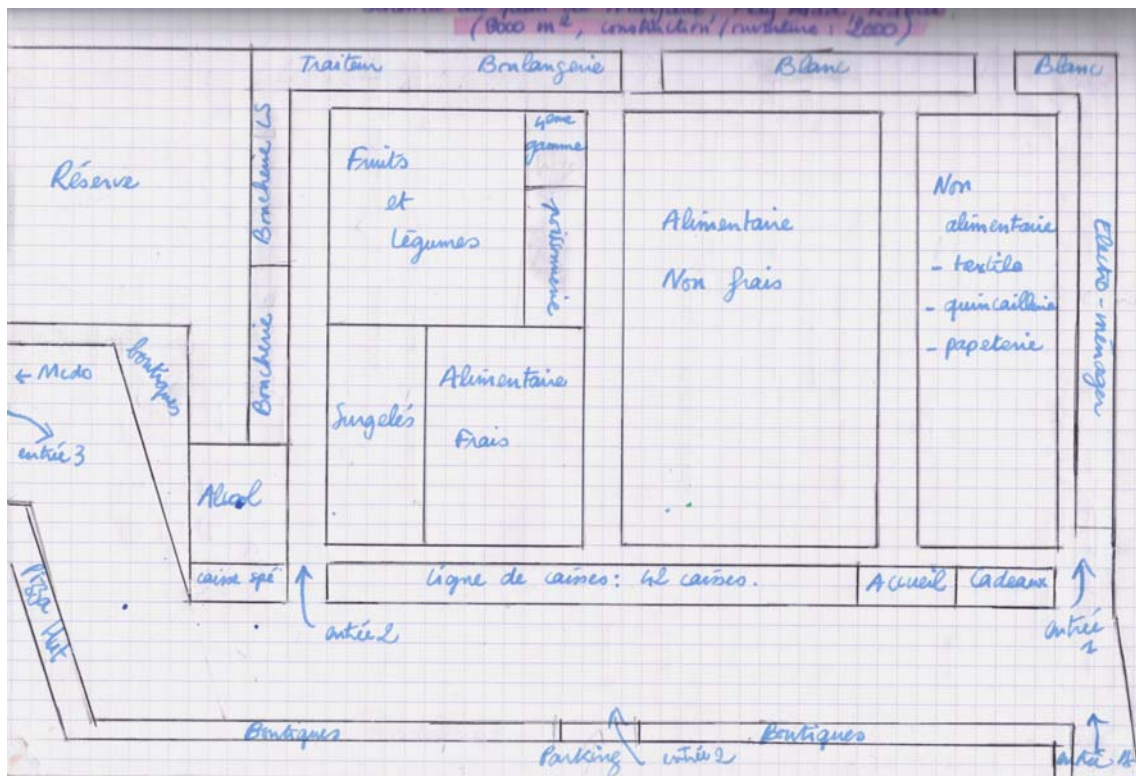 (8000 m², construction/ouverture : 2000)
Traiteur
Boulangerie
Blanc
Blanc
Réserve
Boucherie LS
Boucherie
Fruits
et
légumes
4ème
gamme
poissonnerie
Alimentaire
Non frais
Non
alimentaire
- textile
- quincaillerie
- papeterie
Electro-ménager
← Mcdo
boutiques
entrée 3
Surgelés
Alimentaire
Frais
Alcool
caisse spé
ligne de caisses : 42 caisses.
Accueil
Cadeaux
entrée 2
entrée
1
Pizza Hut
Boutiques
Parking
entrée 2
Boutiques
entrée